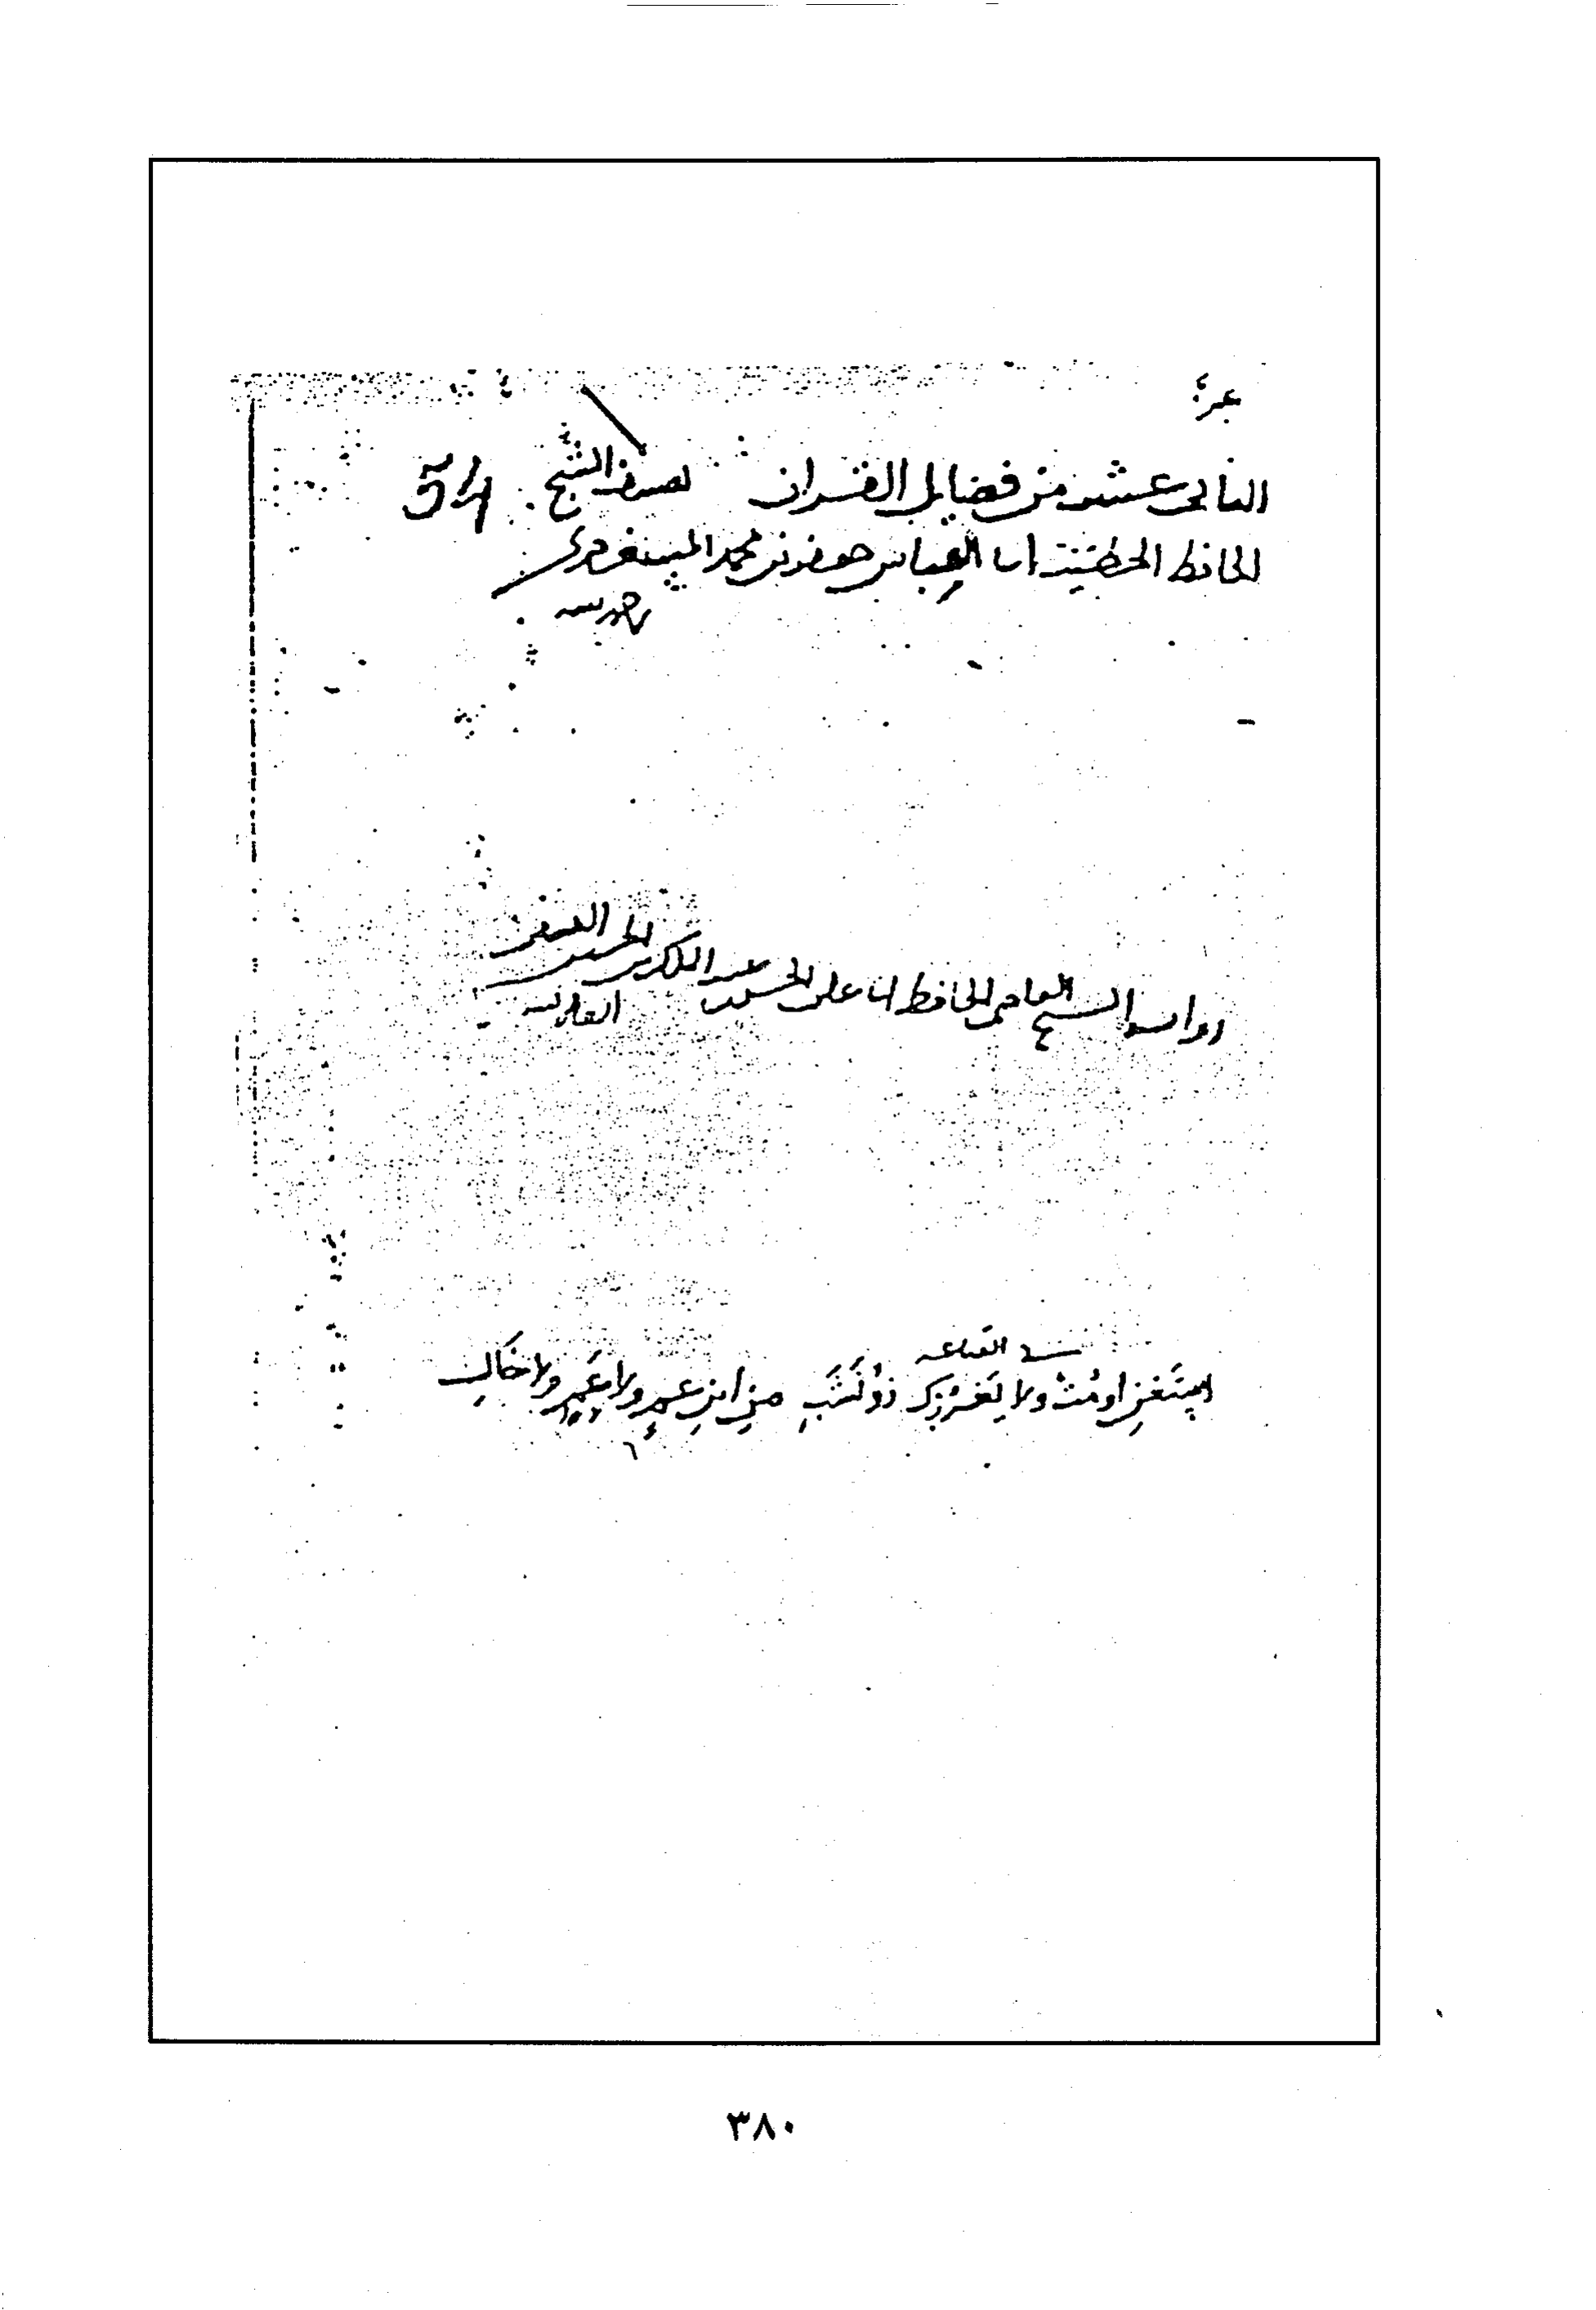 الثانى عشر من فضايل القران تصنيف الشيخ
الحافظ الخطيب ابى العباس جعفر بن محمد المستغفرى
رحمه الله
رواية الشيخ القاضى الحافظ ابى على الحسن بن عبد الملك بن الحسين النسفى
فى القناعة
استغن او مت ولا يغررك ذو نشب من ابن عم ولا عم ولا خال
٣٨٠